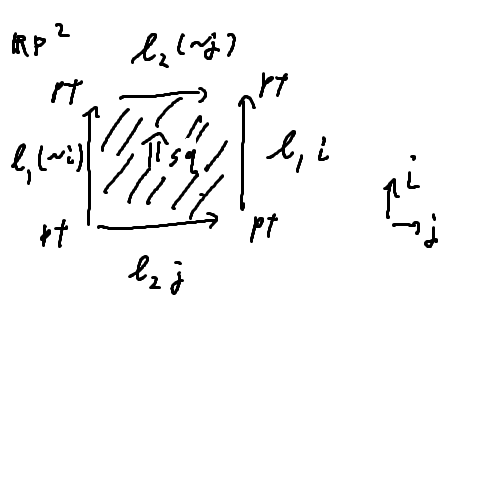 RP²
l₂(~j)
pt pt
l₁(~i) sq l₁ i
i
pt pt j
l₂ j